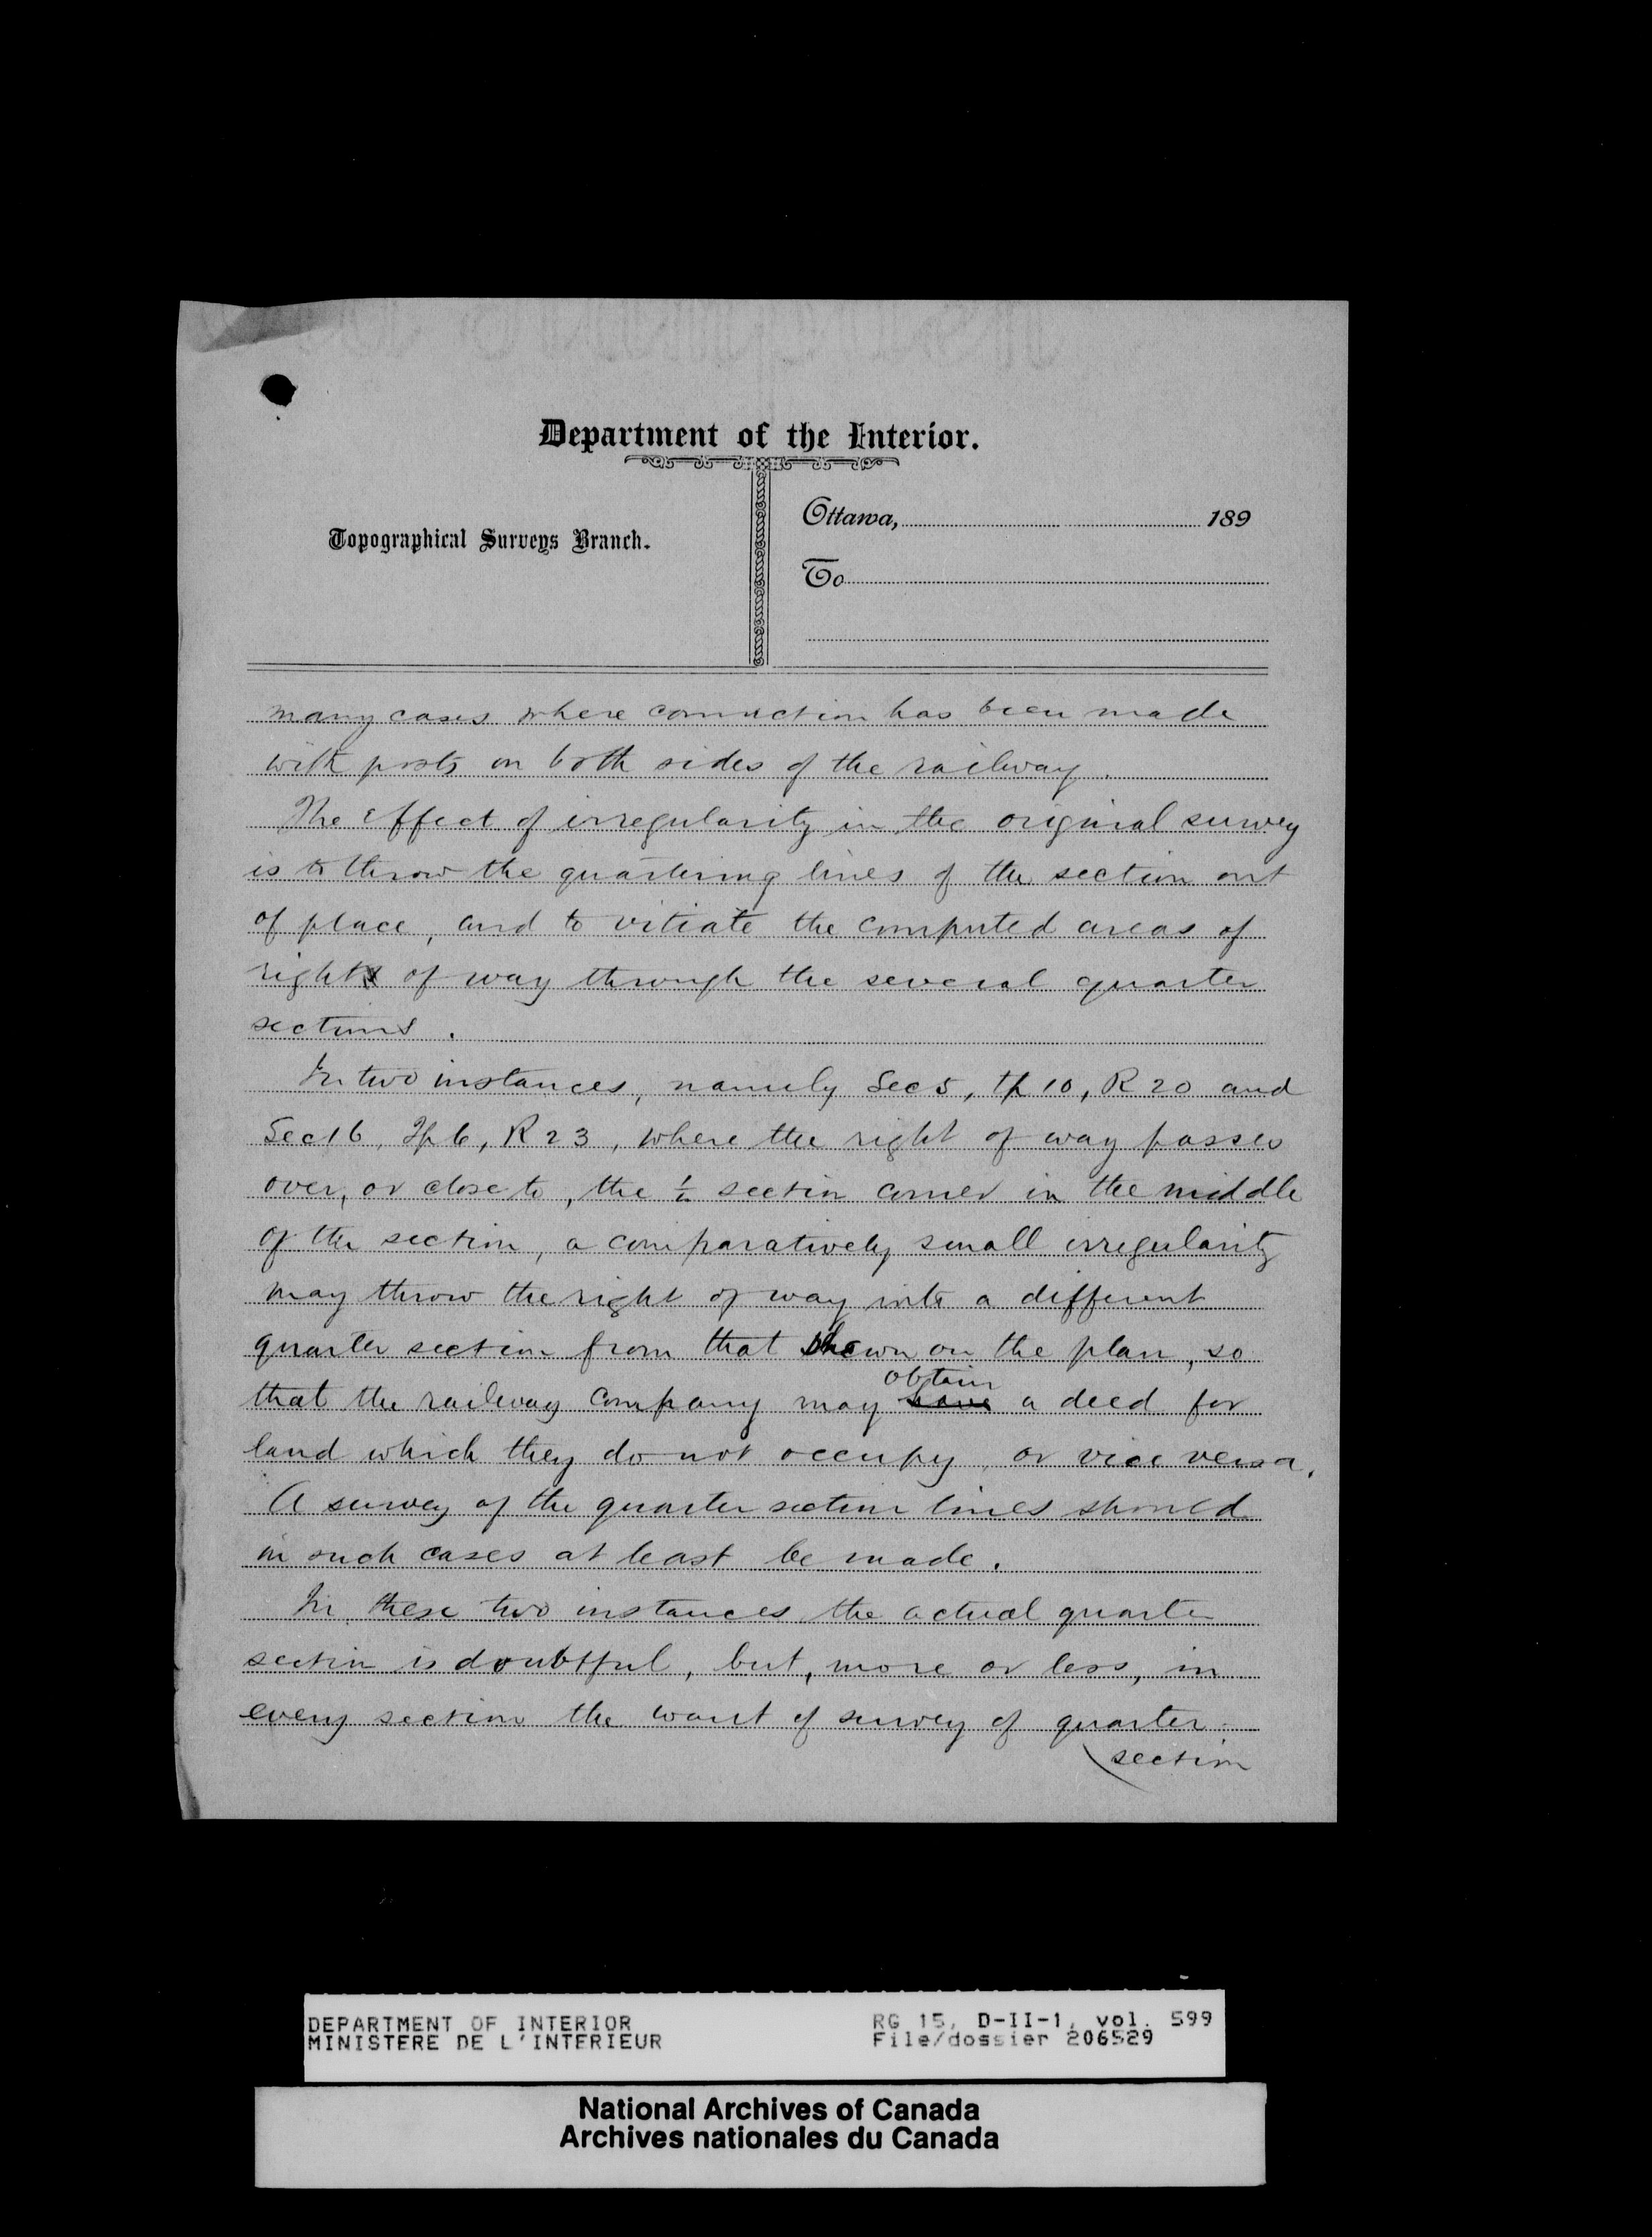 Department of the Interior.
Topographical Surveys Branch.
Ottawa, 189
To
many cases where connection has been made
with posts on both sides of the railway.
The effect of irregularity in the original survey
is to throw the quartering lines of the section out
of place, and to vitiate the computed areas of
right of way through the several quarter
sections.
In two instances, namely Sec 5, Tp 10, R 20 and
Sec 16, Tp 6, R 23, where the right of way passes
over, or close to, the section corner in the middle
of the section, a comparatively small irregularity
may throw the right of way into a different
quarter section from that shown on the plan, so
obtain
that the railway company may a deed for
land which they do not occupy, or vice versa.
A survey of the quarter section lines should
in such cases at least be made.
In these two instances the actual quarter
section is doubtful, but, more or less, in
every section the want of survey of quarter
section
DEPARTMENT OF INTERIOR
MINISTERE DE L'INTERIEUR
RG 15, D-II-1, vol. 599
File/dossier 206529
National Archives of Canada
Archives nationales du Canada